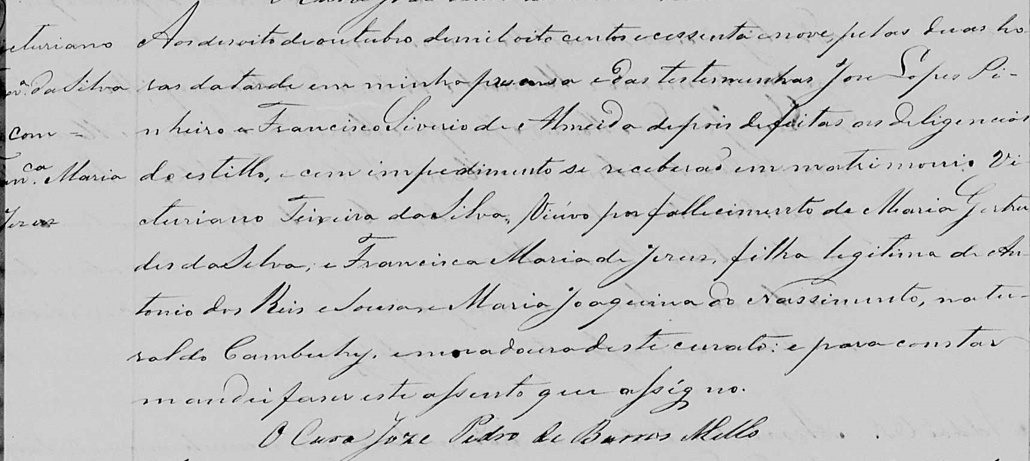 Aos desoito de outubro de mil oito centos e cessenta e nove, pelas duas ho-
cturiano
ras da tarde em minha presensa e das testemunhas Jose Lopes Pi-
da Silva
nheiro e Francisco Siverio de Almeida depois de feitas as deligencias
com =
do estillo, e cem impedimento se receberaõ em matrimonio Vi-
Maria
cturiano Teixeira da Silva, Viúvo por fallecimento de Maria Gertru-
Jezus
des da Silva, e Francisca Maria de Jezus, filha legitima de An-
tonio dos Reis e Sousa, e Maria Joaquina do Nassimento, natu-
ral do Cambuhy, e moradoura deste curato: e para constar
mandei faser este assento que assigno.
O Cura Joze Pedro de Barros Mello